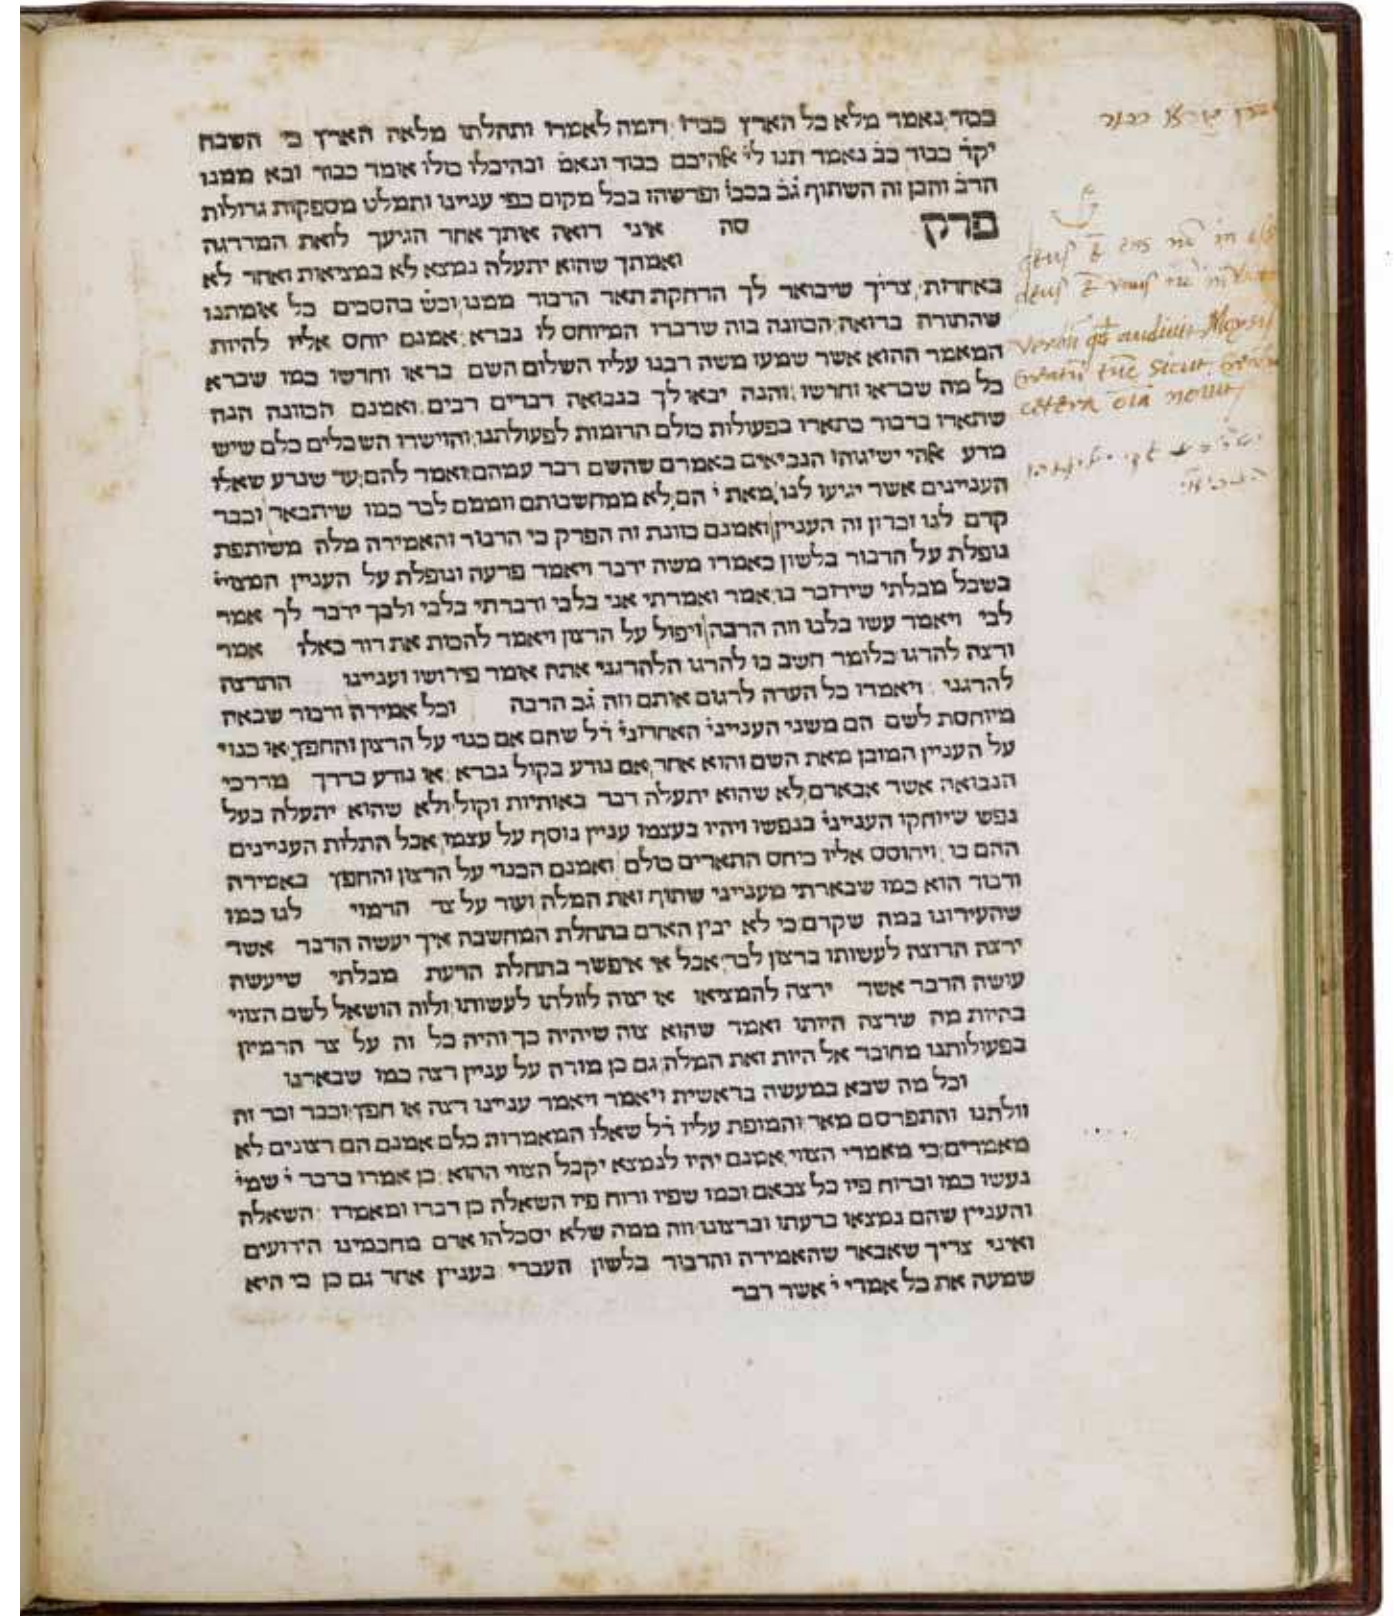 כבוד נאמר מלא כל הארץ כבודו דומה לאמרו ותהלתו מלאה הארץ כי השבח
יקר֗ כבוד כב֗ נאמר תנו לי֗י אהיכם כבוד ונאמ֗ ובהיכלו כולו אומר כבוד ובא ממנו
הרב֗ והבן זה השתוף ג֗כ֗ בכבו֗ ופרשהו בכל מקום כפי עניינו ותמלט מספקות גדולות
פרק סה איני רואה אותך אחר הגיעך לזאת המדרגה
ואמתך שהוא יתעלה נמצא לא במציאות ואחד לא
באחדות, צריך שיבואר לך הרחקת תאר הדבור ממנו וכ֗ש בהסכים כל אומתנו
שהתורה ברואה הכוונה בזה שדברו המיוחס לו נברא אמנם יוחס אליו להיות
המאמר ההוא אשר שמעו משה רבנו עליו השלום השם בראו וחדשו כמו שברא
כל מה שבראו וחדשו והנה יבאו לך בנבואה דברים רבים ואמנם הכוונה הנה
שתארו בדבור כתארו בפעולות כולם הדומות לפעולתנו והוישרו השכלים כלם שיש
מדע אהי ישיגוהו הנביאים באמרם שהשם דבר עמהם ואמר להם עד שנדע שאלו
העניינים אשר יגיעו לנו מאת י֗ הם לא ממחשבותם וזממם לבד כמו שיתבאר וכבר
קדם לנו זכרון זה העניין ואמנם כוונת זה הפרק כי הדבור והאמירה מלה משותפת
נופלת על הדבור בלשון כאמרו משה ידבר ויאמר פרעה ונופלת על העניין המצויי֗
בשכל מבלתי שידובר בו אמר ואמרתי אני בלבי ודברתי בלבי ולבך ידבר לך אמר
לבי ויאמר עשו בלבו וזה הרבה ויפול על הרצון ויאמר להכות את דוד כאלו אמר
ורצה להרגו כלומר חשב בו להרגו הלהרגני אתה אומר פירושו ועניינו התרצה
להרגני ויאמרו כל העדה לרגום אותם וזה ג֗כ הרבה וכל אמירה ודבור שבאה
מיוחסת לשם הם משני הענייני֗ האחרוני֗ ר֗ל שהם אם כנוי על הרצון והחפץ או כנוי
על העניין המובן מאת השם והוא אחד אם נודע בקול נברא או נודע בדרך מדרכי
הנבואה אשר אבארם לא שהוא יתעלה דבר באותיות וקול ולא שהוא יתעלה בעל
נפש שיוחקו הענייני֗ בנפשו ויהיו בעצמו עניין נוסף על עצמו אבל התלות העניינים
ההם בו ויחוסם אליו ביחס התארים כולם ואמנם הכנוי על הרצון והחפץ באמירה
ודבור הוא כמו שבארתי מענייני שתוף זאת המלה ועוד על צד הדמוי לנו כמו
שהעירונו במה שקדם כי לא יבין האדם בתחלת המחשבה איך יעשה הדבר אשר
ירצה הרוצה לעשותו ברצון לבד אבל אי איפשר בתחלת הדעת מבלתי שיעשה
עושה הדבר אשר ירצה להמציאו או יצוה לזולתו לעשותו ולזה הושאל לשם הצווי
בהיות מה שרצה היותו ואמר שהוא צוה שיהיה כך והיה כל זה על צד הדמיון
בפעולותנו מחובר אל היות זאת המלה גם כן מורה על עניין רצה כמו שבארנו
וכל מה שבא במעשה בראשית ויאמר ויאמר עניינו רצה או חפץ וכבר זכר זה
זולתנו והתפרסם מאד והמופת עליו ר֗ל שאלו המאמרות כלם אמנם הם רצונים לא
מאמרים כי מאמרי הצווי אמנם יהיו לנמצא יקבל הצווי ההוא כן אמרו בדבר י֗ שמי֗
נעשו כמו וברוח פיו כל צבאם וכמו שפיו ורוח פיו השאלה כן דברו ומאמרו השאלה
והעניין שהם נמצאו בדעתו וברצונו וזה ממה שלא יסכלהו אדם מחכמינו הידועים
ואיני צריך שאבאר שהאמירה והדבור בלשון העברי בעניין אחד גם כן כי היא
שמעה את כל אמרי י֗ אשר דבר
deus ē ens nō in
deus ē unus
verbū qd audiuit Moyses
creatū
cetera oīa nouit